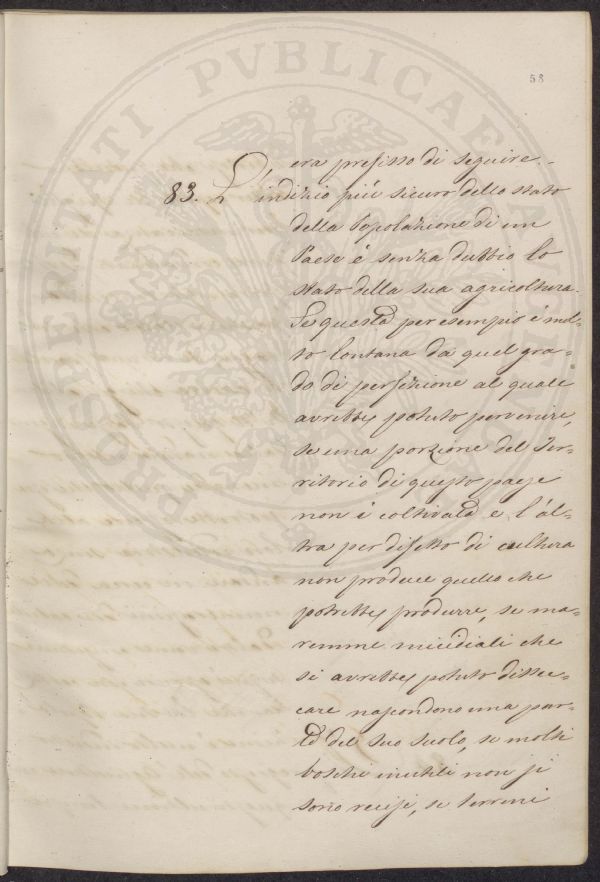 PROSPERITATI PVBLICAE
53
era prefisso di seguire.
83. L'indizio più sicuro dello stato
della Popolazione di un
Paese è senza dubbio lo
stato della sua agricoltura.
Se questa per esempio è mol-
to lontana da quel gra-
do di perfezione al quale
avrebbe potuto pervenire,
se una porzione del Ter-
ritorio di questo paese
non è coltivata e l'al-
tra per difetto di cultura
non produce quello che
potrebbe produrre, se ma-
remme micidiali che
si avrebbe potuto dissec-
care nascondono una par-
te del suo suolo, se molti
boschi inutili non si
sono recisi, se terreni